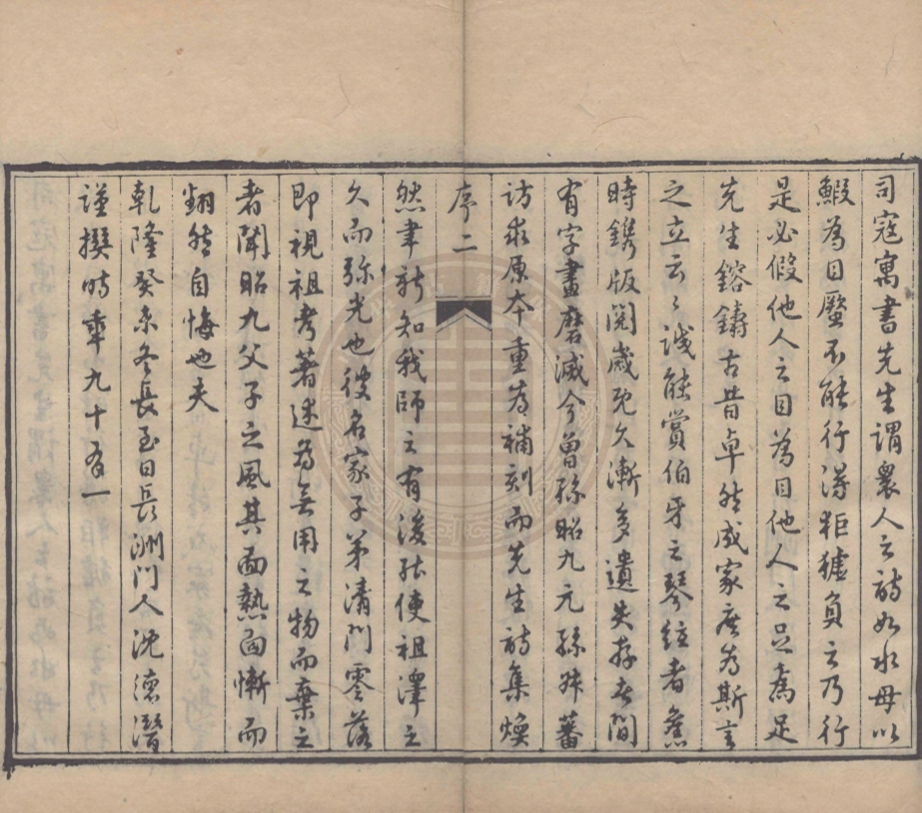 司寇寓書先生謂衆人之詩如水母以
鰕為目蟨不能行得狚𤢪負之乃行
是必假他人之目為目他人之足為足
先生鎔鑄古昔卓然成家庶為斯言
之立云云誠能賞伯牙之琴絃者焦
時鐫版閱歲既久漸多遺失存者間
有字畫磨滅今曾孫昭九元孫蕃
訪求原本重為補刻而先生詩集煥
序二
然聿新知我師之有後能使祖澤之
久而弥光也彼名家子弟清門零落
即視祖考著述為無用之物而棄之
者聞昭九父子之風其面熱面慚而
翻然自悔也夫
乾隆癸未冬長至日長洲門人沈德潛
謹撰時年九十有一